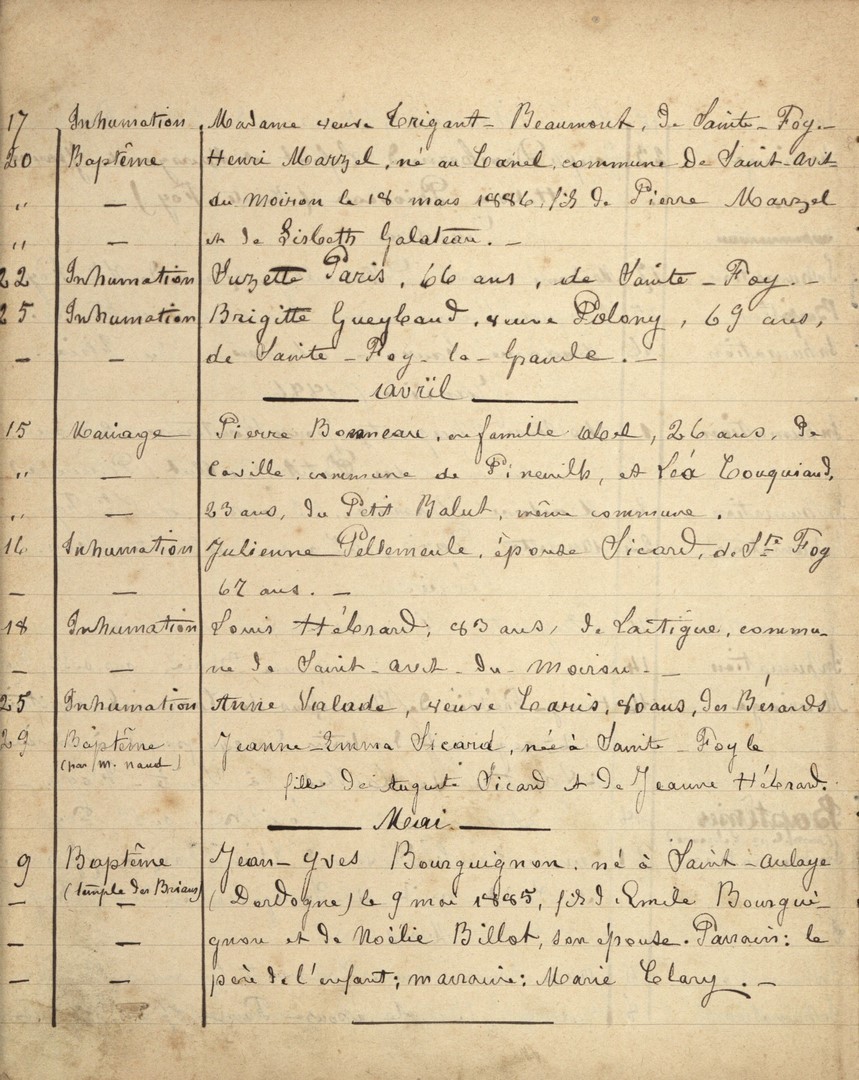 17 Inhumation Madame veuve Trigant-Beaumont, de Sainte-Foy.-
20 Baptême Henri Marzel, né au Canel, commune de Saint-Avit-
" — du Moiron le 18 mars 1886, fils de Pierre Marzel
" — et de Lisbeth Galateau. -
22 Inhumation Suzette Paris, 66 ans, de Sainte-Foy. -
25 Inhumation Brigitte Gueybaud, veuve Polony, 69 ans,
— — de Sainte-Foy-la-Grande. -
— Avril —
15 Mariage Pierre Bonneau, en famille Abel, 26 ans, de
" — Caville, commune de Pineuilh, et Léa Couquiaud,
" — 23 ans, du Petit Balut, même commune.
16 Inhumation Julienne Pellemeule, épouse Sicard, de Ste Foy
— — 67 ans. -
18 Inhumation Louis Hébrard, 83 ans, de Lartigue, commu-
— — ne de Saint-Avit-du-Moiron. -
25 Inhumation Anne Valade, veuve Caris, 80 ans, des Bérards
29 Baptême Jeanne-Emma Sicard, née à Sainte-Foy le
(par M. Naud) fille de Auguste Sicard et de Jeanne Hébrard.
— Mai —
9 Baptême Jean-Yves Bourguignon, né à Saint-Aulaye
(temple des Briands) (Dordogne) le 9 mai 1885, fils d'Emile Bourgui-
— — gnon et de Noélie Billot, son épouse. Parrain: le
— — père de l'enfant; marraine: Marie Clary. -